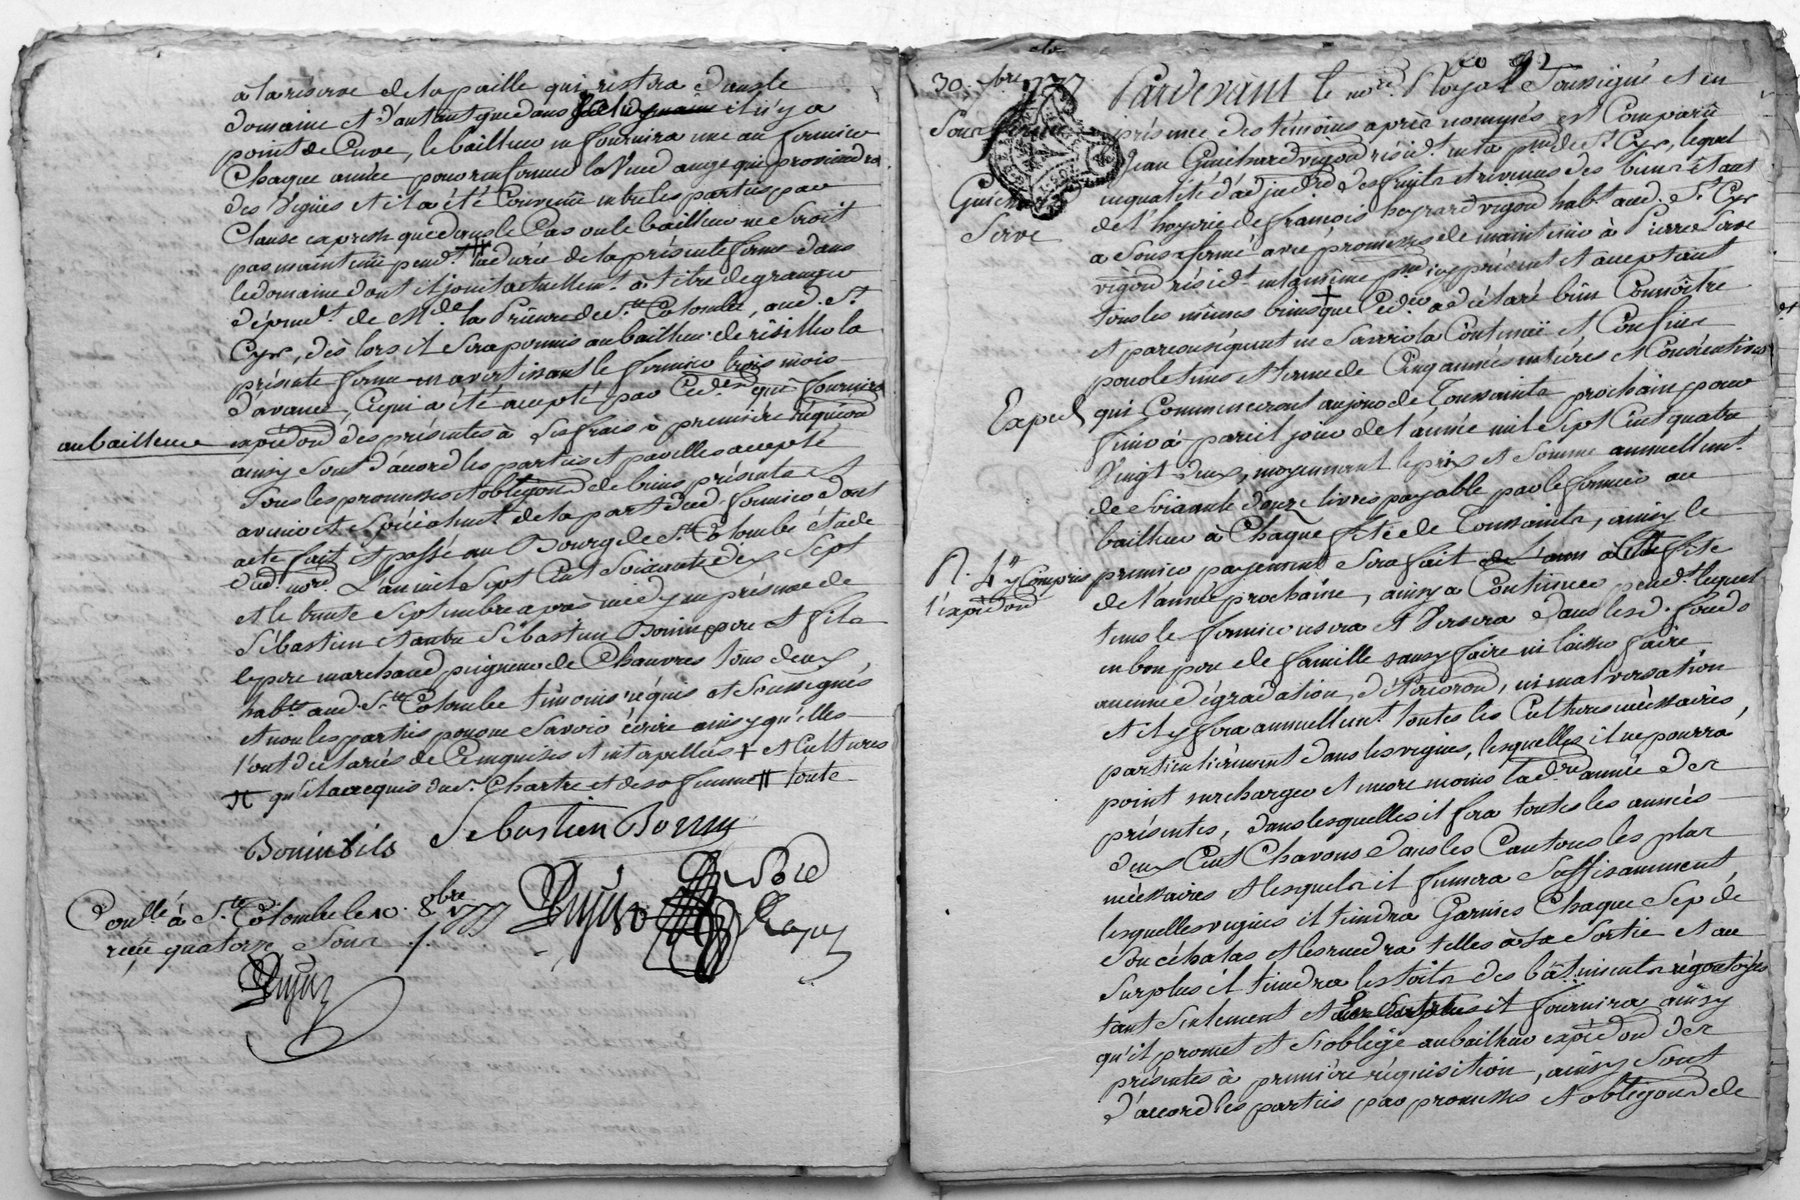 à la réserve de la paille qui restera dans le
domaine et d'autant que dans il n'y a
point de Cuve, le bailleur en fournira une au fermier
Chaque année pour renfermer la Vendange qui proviendra
des Vignes et il a été Convenu entre les parties par
Clause expresse que dans le Cas ou le bailleur ne seroit
pas maintenu pendt # la durée de la présente ferme dans
le domaine dont il jouit actuellemt. à titre de granger
dépendt. de Mde la Prieure de Ste Colombe, aud. St.
Cyr, dès lors il sera permis au bailleur de résilier la
présente ferme en avertissant le fermier trois mois
d'avance, Ce qui a été accepté par Ced. der qui fournira
au bailleur expédon des présentes à ses frais à première réquision
ainsy sont d'accord les parties et par elles accepté
sous les promesses et obligaons de biens présents et
avenir et spécialment de la part dud. fermier dont
acte fait et passé au Bourg de Ste Colombe étude
dud. nore. L'an mil sept Cent soixante dix sept
et le trente septembre après medy en présence de
Sébastien et autre Sébastien Bonin pere et fils
le pere marchand peigneur de Chanvres tous deux
habts. aud. Ste Colombe témoins réquis et soussignés
et non les parties pour ne savoir écrire ainsy qu'elles
l'ont déclarés de Ce enquises et interpellées + et Cultures
# qu'il a acquis du sr. Chartre et de sa femme # toute
Bonin fils Sebastien Bonin
Conllé à Ste Colombe le 10. 8bre 1777
reçu quatorze sous
Dujas
30. 7bre 1777
Pardevant le nore. Royal soussigné et en
présence des témoins après nommés est Comparu
Jean Guichard vigon résidt. en la pse de St. Cyr, lequel
en qualité d'adjudre des fruits et revenus des biens étant
Serve
de l'hoyrie de françois hoyrard vigon habt. aud. St. Cyr
a sousafermé avec promesses de maintenir à Pierre Serve
vigon résidt. en la même pse icy présent et acceptant
tous les mêmes biens + que Ced. der a déclaré bien Connoître
et par conséquent en Savoir la Contenue et Confins
pour le tems et terme de Cinq années entières et Consécutives
Exped.
qui Commenceront au jour de Toussaints prochain pour
finir à pareil jour de l'année mil Sept Cent quatre
Vingt deux, moyennant le prix et Somme annuellemt.
de soixante douze livres payable par le fermier au
bailleur à Chaque fête de Toussaints, ainsy le
R. 4# y Compris l'expédon
premier payement sera fait à la fête
de l'année prochaine, ainsy à Continuer pendt. lequel
tems le fermier usera et Versera dans lesd. fonds
en bon pere de famille sans y faire ni laisser faire
aucune dégradation, détérioraon, ni mal versation
et il y fera annuellemt. toutes les Cultures nécessaires,
particulièrement dans les vignes, lesquelles il ne pourra
point surcharger et encore moins la dre année des
présentes, dans lesquelles il fera toutes les années
deux Cent Chavons dans les Cantons les plus
nécessaires et lesquels il fumera Suffisamment
lesquelles vignes il tiendra Garnies Chaque Sep de
Son échalas et les rendra telles à sa Sortie et au
Surplus il tiendra les toits des bâtiments régoutoyés
tant seulement et il fournira ainsy
qu'il promet et s'oblige au bailleur expédon des
présentes à première réquisition, ainsy sont
d'accord les parties par promesses et obligaons de